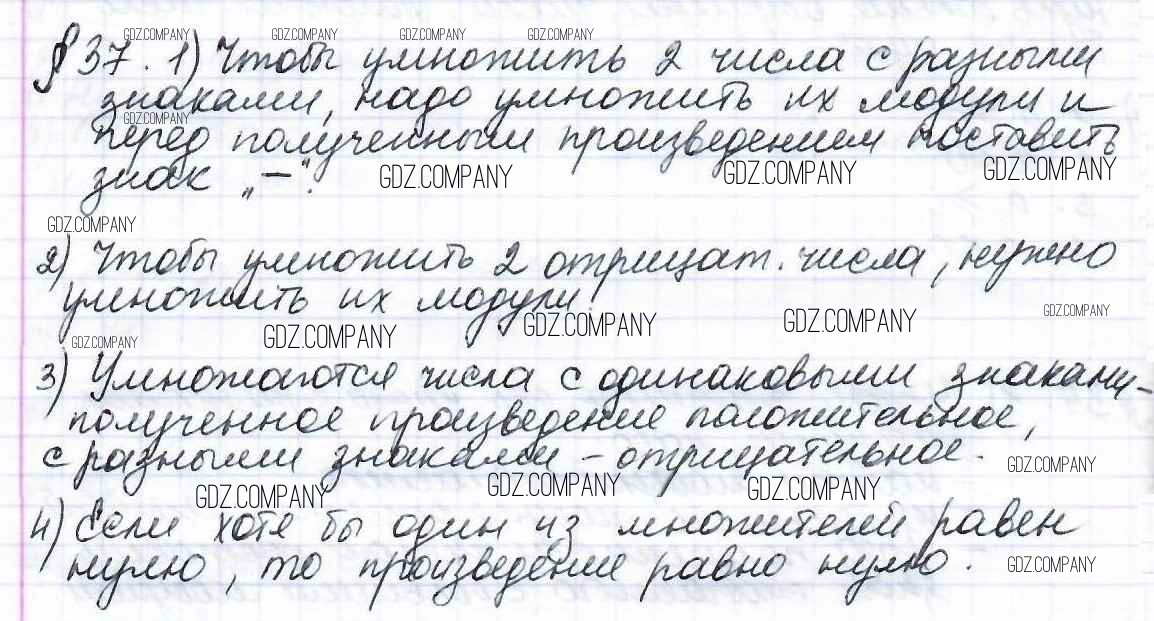 GDZ.COMPANY GDZ.COMPANY GDZ.COMPANY GDZ.COMPANY
§ 37. 1) Чтобы умножить 2 числа с разными
знаками, надо умножить их модули и
GDZ.COMPANY
перед полученным произведением поставить
знак „−“.
GDZ.COMPANY GDZ.COMPANY GDZ.COMPANY
GDZ.COMPANY
2) Чтобы умножить 2 отрицат. числа, нужно
умножить их модули.
GDZ.COMPANY GDZ.COMPANY GDZ.COMPANY GDZ.COMPANY
GDZ.COMPANY
3) Умножаются числа с одинаковыми знаками -
полученное произведение положительное,
с разными знаками - отрицательное.
GDZ.COMPANY
GDZ.COMPANY GDZ.COMPANY GDZ.COMPANY
4) Если хотя бы один из множителей равен
нулю, то произведение равно нулю.
GDZ.COMPANY